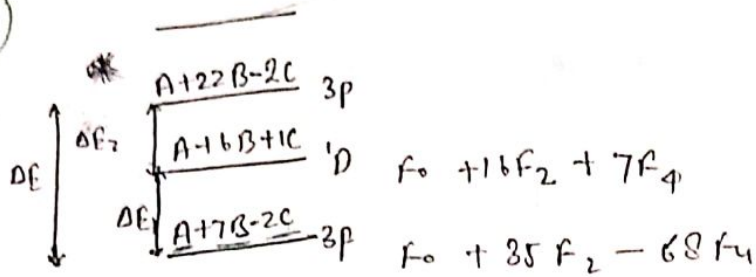 )
A+22B-2C 3p
ΔE ΔE₂ A+6B+1C 'D F₀ +16F₂ + 7F₄
ΔE A+7B-2C 3p F₀ + 35F₂ - 68F₄